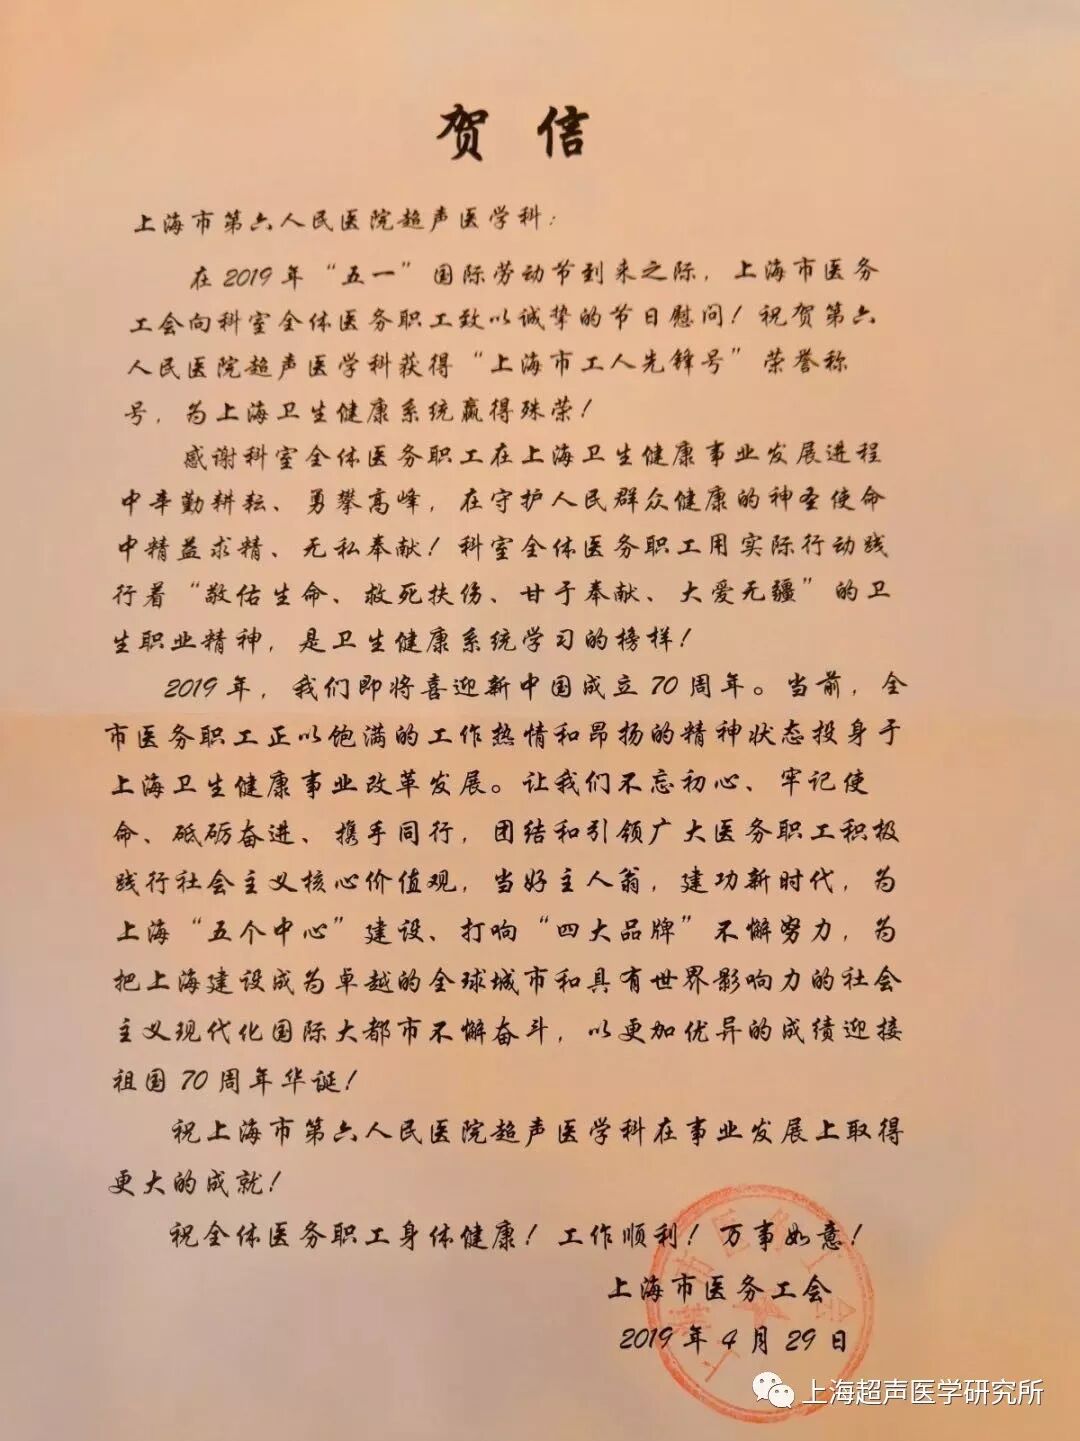 贺信
上海市第六人民医院超声医学科：
在2019年“五一”国际劳动节到来之际，上海市医务
工会向科室全体医务职工致以诚挚的节日慰问！祝贺第六
人民医院超声医学科获得“上海市工人先锋号”荣誉称
号，为上海卫生健康系统赢得殊荣！
感谢科室全体医务职工在上海卫生健康事业发展进程
中辛勤耕耘、勇攀高峰，在守护人民群众健康的神圣使命
中精益求精、无私奉献！科室全体医务职工用实际行动践
行着“敬佑生命、救死扶伤、甘于奉献、大爱无疆”的卫
生职业精神，是卫生健康系统学习的榜样！
2019年，我们即将喜迎新中国成立70周年。当前，全
市医务职工正以饱满的工作热情和昂扬的精神状态投身于
上海卫生健康事业改革发展。让我们不忘初心、牢记使
命、砥砺奋进、携手同行，团结和引领广大医务职工积极
践行社会主义核心价值观，当好主人翁，建功新时代，为
上海“五个中心”建设、打响“四大品牌”不懈努力，为
把上海建设成为卓越的全球城市和具有世界影响力的社会
主义现代化国际大都市不懈奋斗，以更加优异的成绩迎接
祖国70周年华诞！
祝上海市第六人民医院超声医学科在事业发展上取得
更大的成就！
祝全体医务职工身体健康！工作顺利！万事如意！
上海市医务工会
2019年4月29日
上海市医务工会
上海超声医学研究所